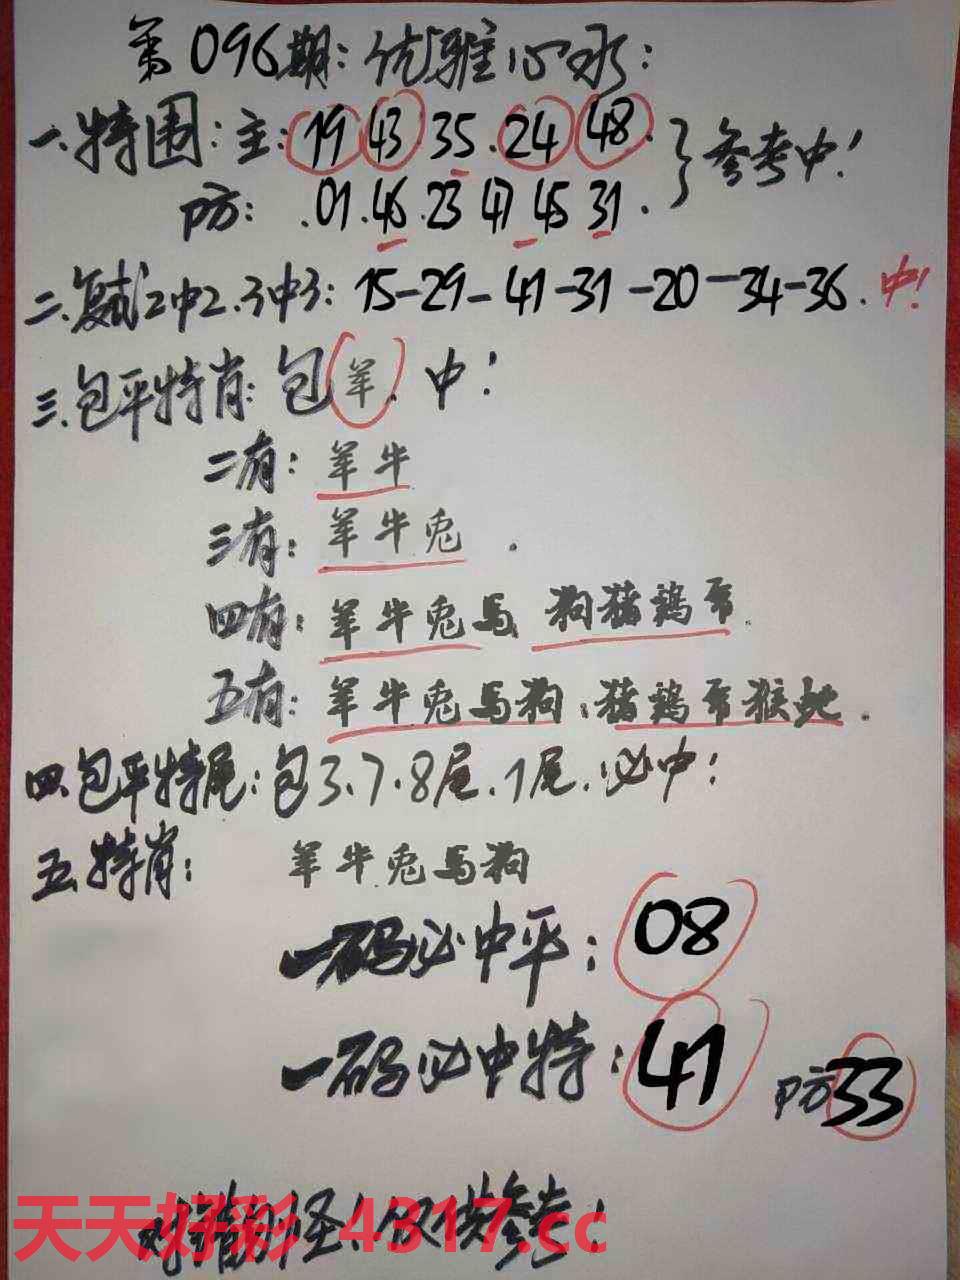 第096期:优雅心水:
一.特围:主:19 43 35.24 48.}参考中!
防:.01.46.23 47 45 31.
二.复试2中2.3中3:15-29-41-31-20-34-36.中!
三.包平特肖:包羊.中!
二有:羊牛
三有:羊牛兔.
四有:羊牛兔马 狗猪鸡
五有:羊牛兔马狗:猪鸡 猴蛇.
四.包平特尾:包3.7.8尾.1尾.必中!
五.特肖:羊牛兔马狗
一码必中平:08
一码必中特:41 防33
对错勿怪!仅供参考!
天天好彩 4317.cc